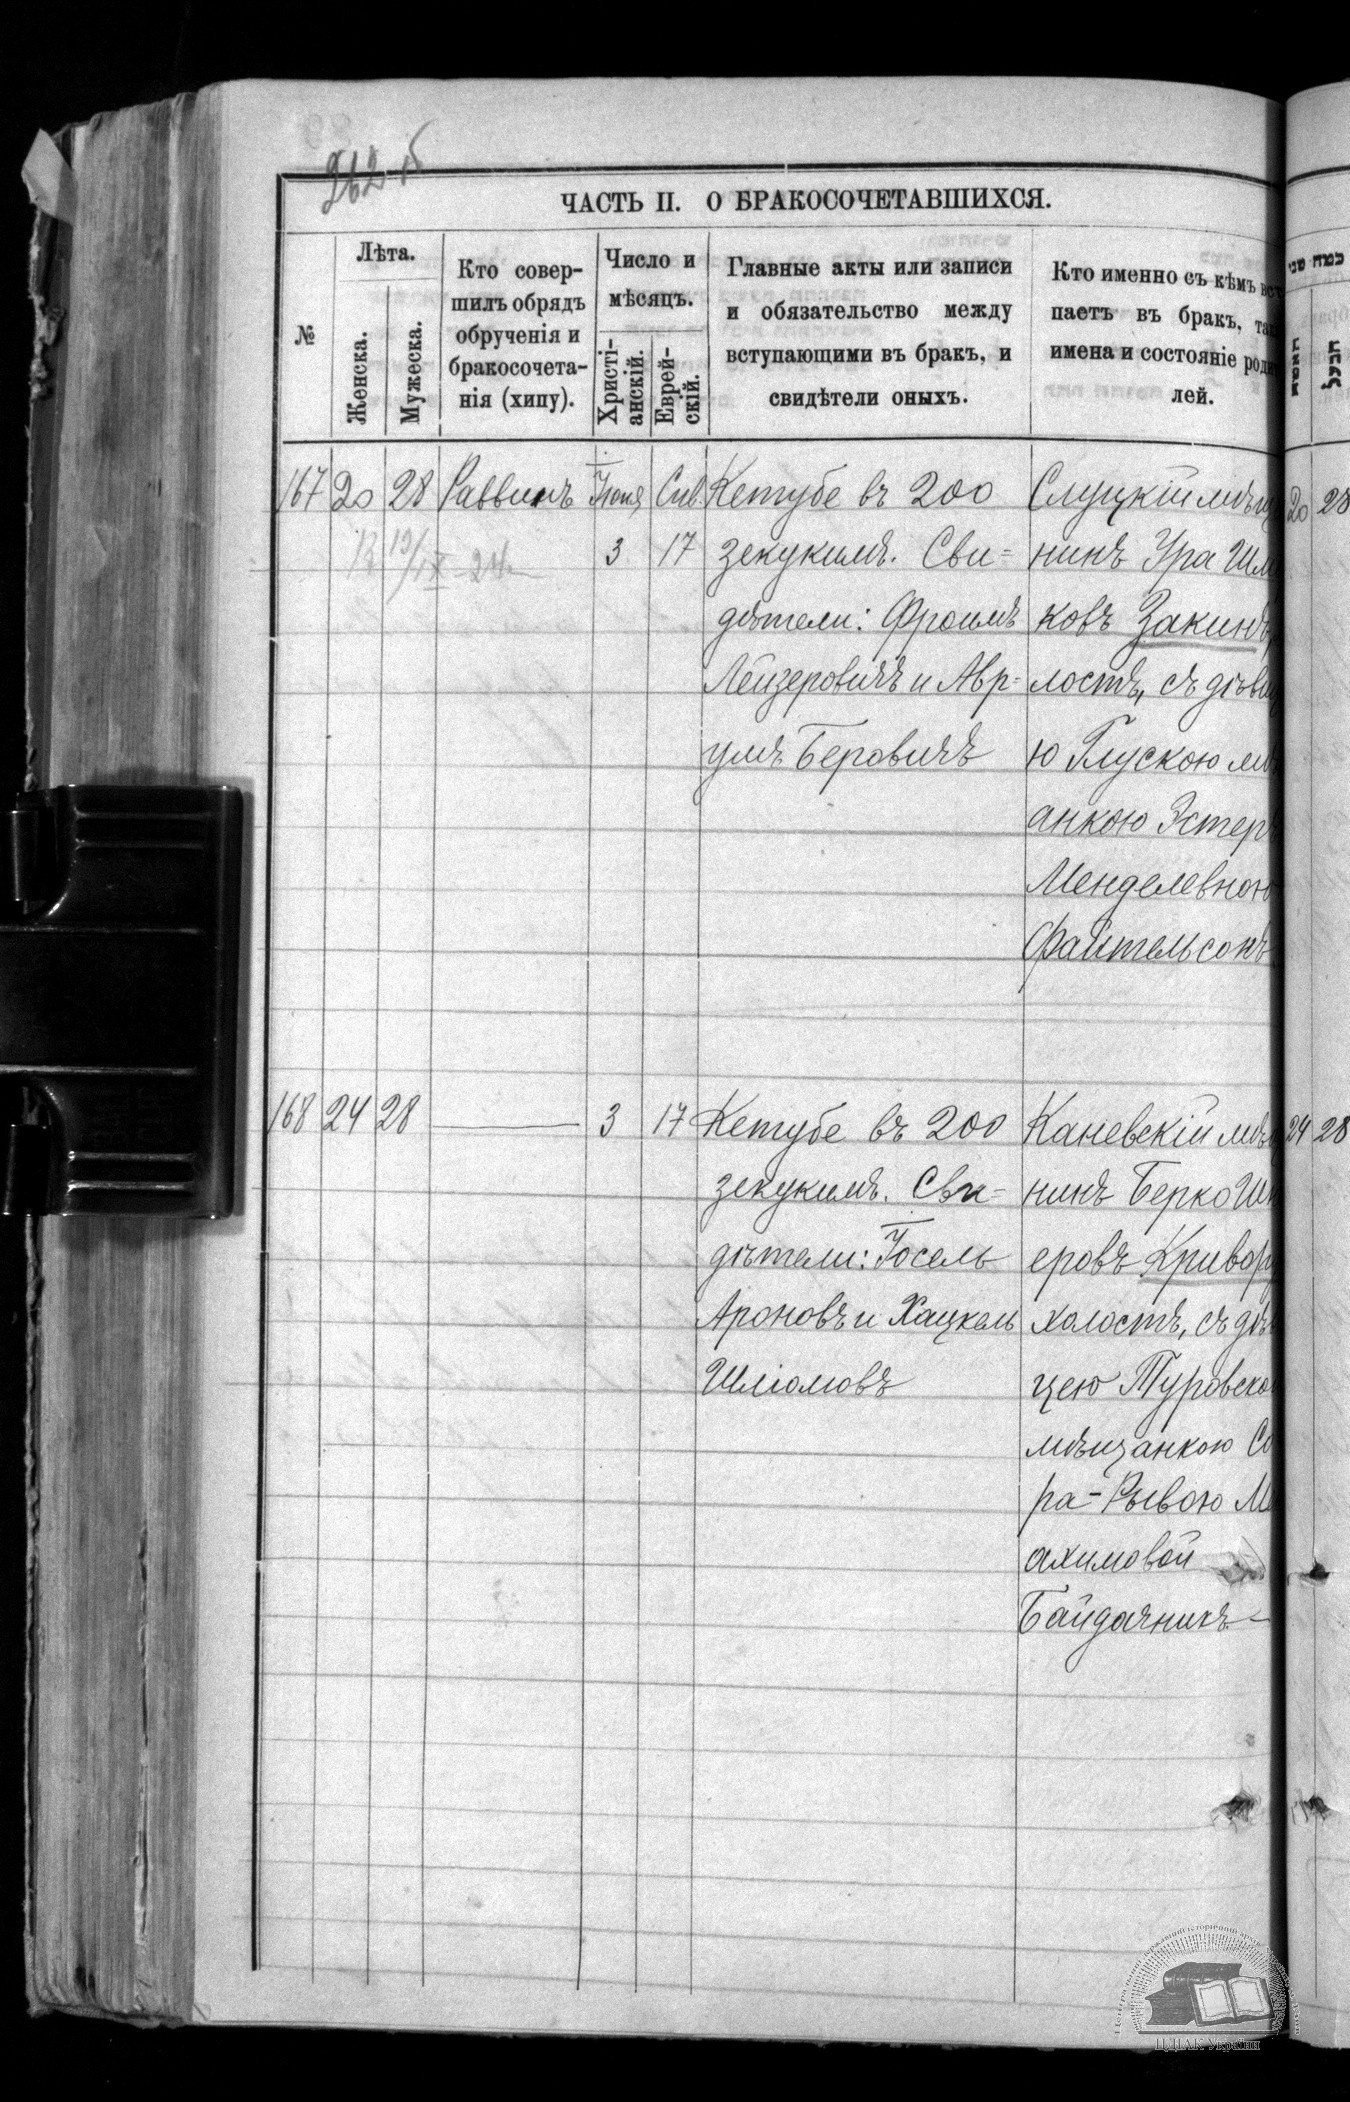 262 б
ЧАСТЬ II. О БРАКОСОЧЕТАВШИХСЯ.
№
Лѣта.
Женска.
Мужеска.
Кто совер-
шилъ обрядъ
обрученія и
бракосочета-
нія (хипу).
Число и
мѣсяцъ.
Христі-
анскій.
Еврей-
скій.
Главные акты или записи
и обязательство между
вступающими въ бракъ, и
свидѣтели оныхъ.
Кто именно съ кѣмъ вст
паетъ въ бракъ, так
имена и состояніе роди
лей.
167 20 28 Раввинъ Іюня Сив. Кетубе въ 200
3 17 зекукимъ. Сви-
дѣтели: Фроимъ
Лейзеровичъ и Авр-
умъ Беровичъ
Слуцкій мѣщ
нинъ Ура Шл
ковъ Закинъ,
лостъ, съ дѣви
ю Глускою мѣ
анкою Эстер
Менделевною
Файтельсонъ
20 28
168 24 28 — 3 17 Кетубе въ 200
зекукимъ. Сви-
дѣтели: Іосель
Ароновъ и Хацкель
Шліомовъ
Каневскій мѣщ
нинъ Берко Шм
еровъ Кривору
холостъ, съ дѣв
цею Туровско
мѣщанкою Со
ра-Рывою М
ахимовой
Байдачникъ
24 28
ЦДІАК України